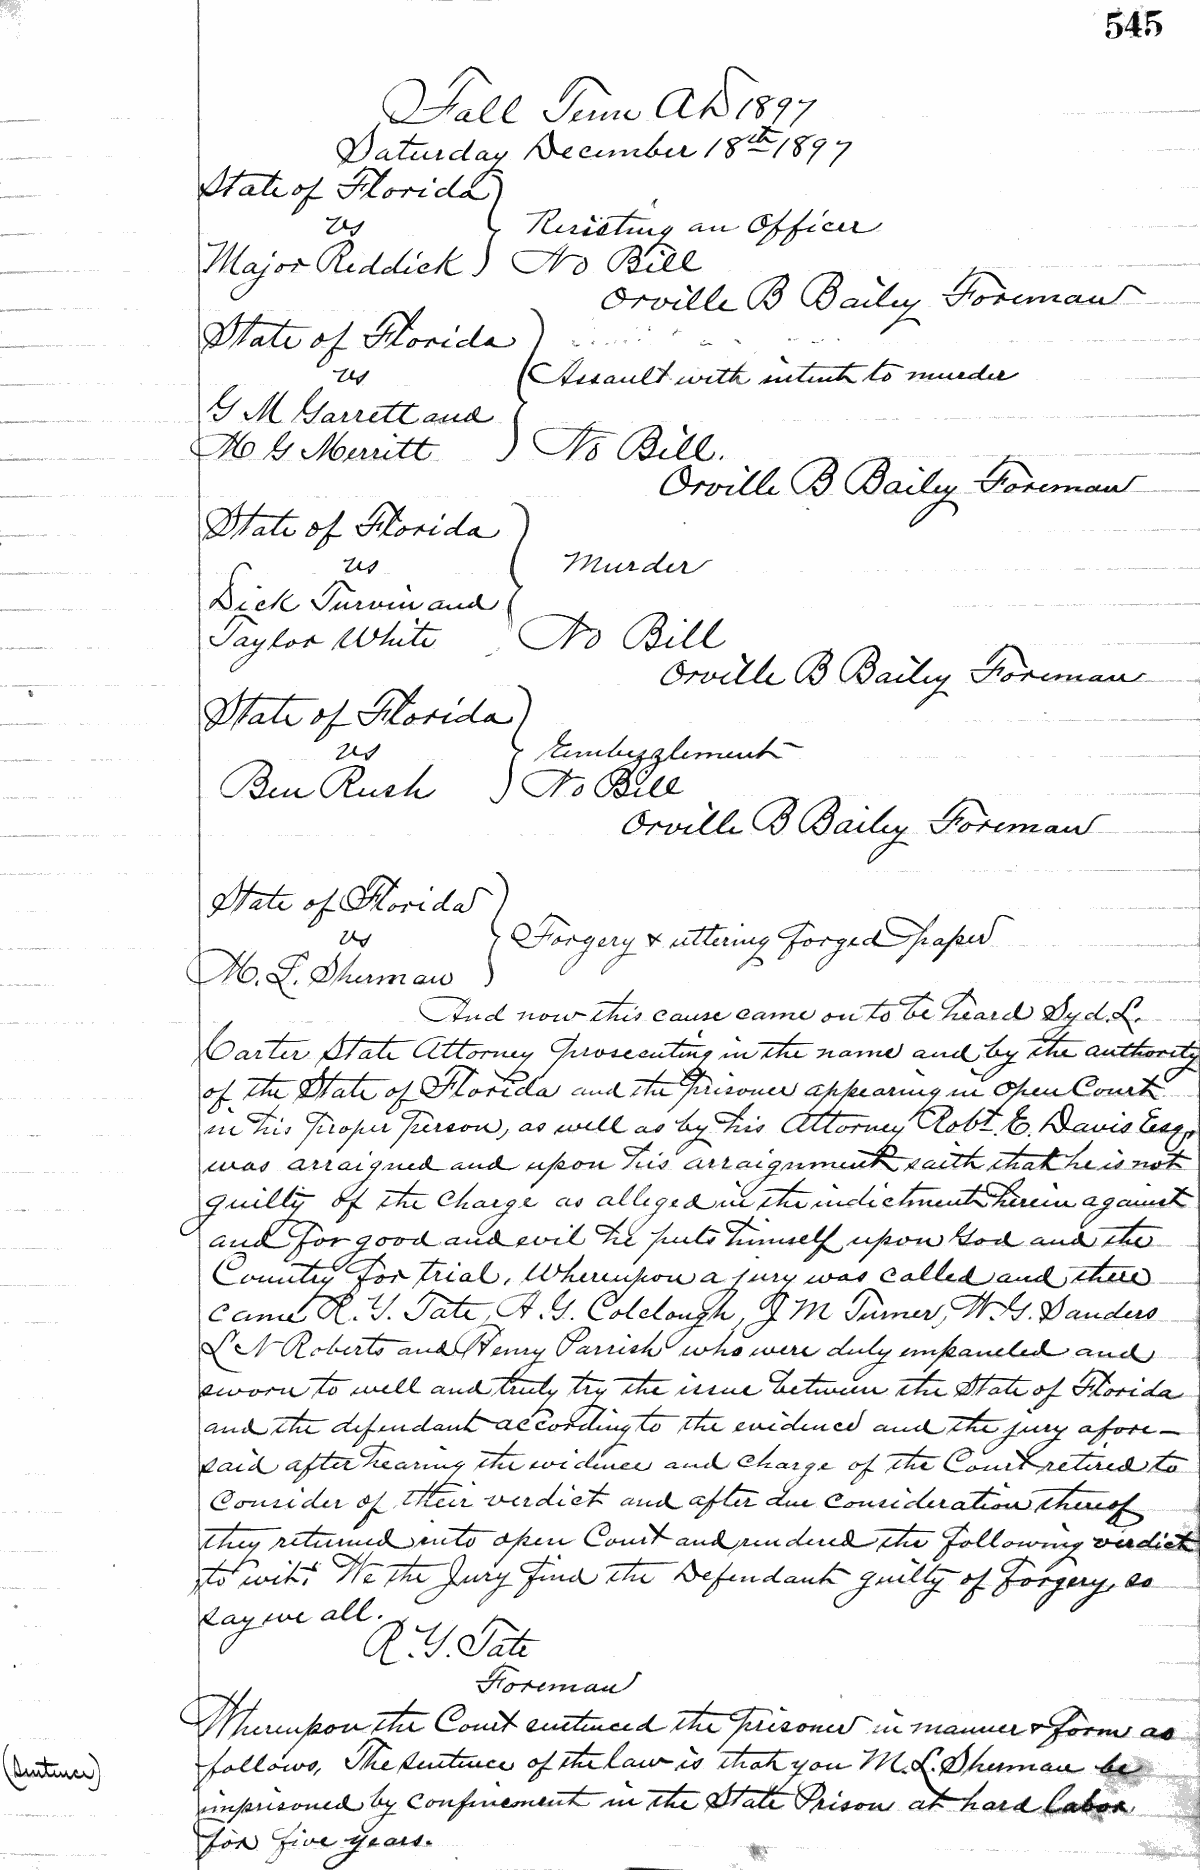 545
Fall Term AD 1897
Saturday December 18th 1897
State of Florida
vs
Resisting an Officer
Major Reddick
No Bill
Orville B Bailey Foreman
State of Florida
vs
Assault with intent to murder
G M Garrett and
M G Merritt
No Bill.
Orville B Bailey Foreman
State of Florida
vs
Murder
Dick Turvin and
Taylor White
No Bill
Orville B Bailey Foreman
State of Florida
vs
Embezzlement
Ben Rush
No Bill
Orville B Bailey Foreman
State of Florida
vs
Forgery & uttering forged paper
M. L. Sherman
And now this cause came on to be heard Syd. L.
Carter State Attorney prosecuting in the name and by the authority
of the State of Florida and the prisoner appearing in open Court
in his proper person, as well as by his Attorney Robt. E. Davis Esq,
was arraigned and upon his arraignment saith that he is not
guilty of the charge as alleged in the indictment herein against
and for good and evil he puts himself upon God and the
Country for trial. Whereupon a jury was called and there
came R. Y. Tate, A. G. Colclough, J M Turner, W. G. Sanders
L N Roberts and Henry Parrish who were duly empaneled and
sworn to well and truly try the issue between the State of Florida
and the defendant according to the evidence and the jury afore-
said after hearing the evidence and charge of the Court retired to
consider of their verdict and after due consideration thereof
they returned into open Court and rendered the following verdict
to wit: We the Jury find the Defendant guilty of Forgery, so
say we all.
R. Y. Tate
Foreman
Whereupon the Court sentenced the prisoner in manner & form as
(Sentence)
follows, The sentence of the law is that you M. L. Sherman be
imprisoned by confinement in the State Prison at hard labor
for five years.